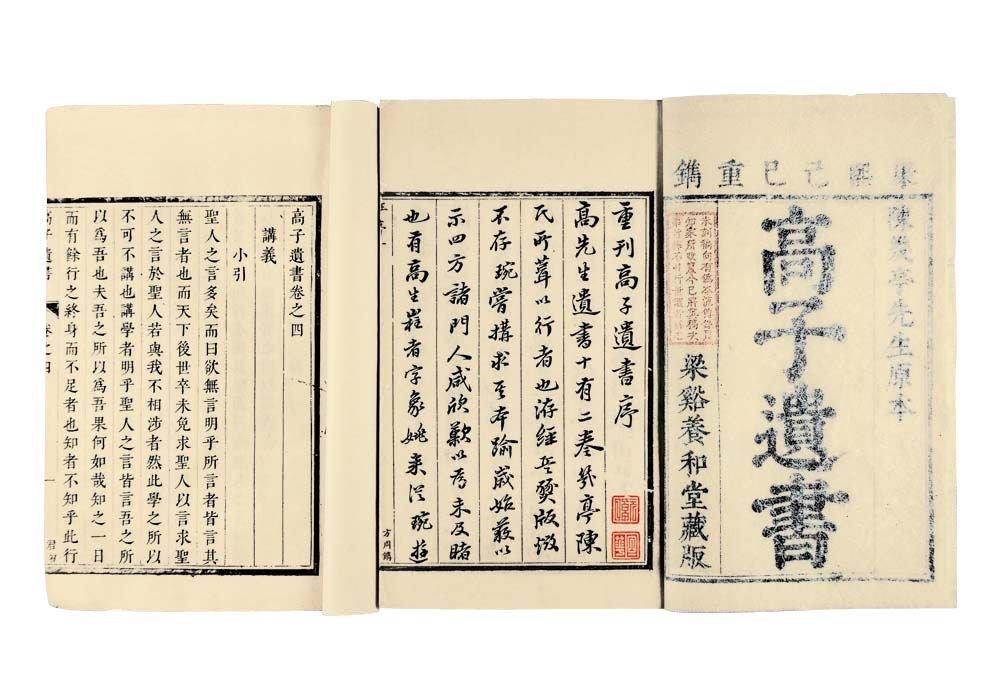 康熙己巳重鐫
陳幾亭先生原本
高子遺書
梁谿養和堂藏版
重刊高子遺書序
高先生遺書十有二卷幾亭陳
氏所葺以行者也洊經兵燹版燬
不存琬嘗搆求其本踰歲始获以
示四方諸門人咸欣歎以為未及睹
也有高生嵀者字象姚来從琬遊
高子遺書卷之四
講義
小引
聖人之言多矣而曰欲無言明乎所言者皆言其
無言者也而天下後世卒未免求聖人以言求聖
人之言於聖人若與我不相涉者然此學之所以
不可不講也講學者明乎聖人之言皆言吾之所
以為吾也夫吾之所以為吾果何如哉知之一日
而有餘行之終身而不足者也知者不知乎此行
高子遺書 卷之四